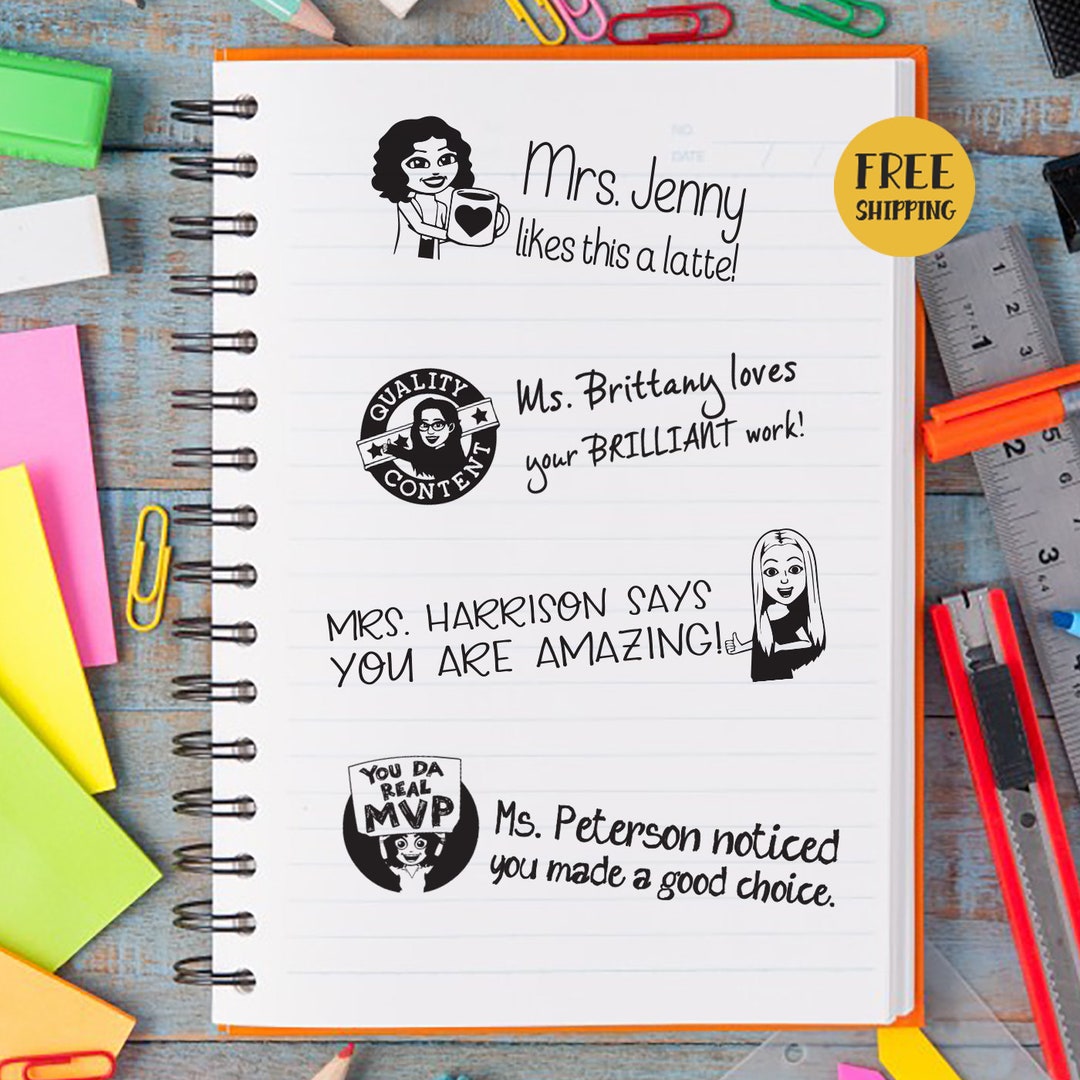 NO.
DATE / /
Mrs. Jenny
likes this a latte!
FREE
SHIPPING
QUALITY
CONTENT
Ms. Brittany loves
your BRILLIANT work!
MRS. HARRISON SAYS
YOU ARE AMAZING!
YOU DA
REAL
MVP
Ms. Peterson noticed
you made a good choice.
1
2
3
5
32
64